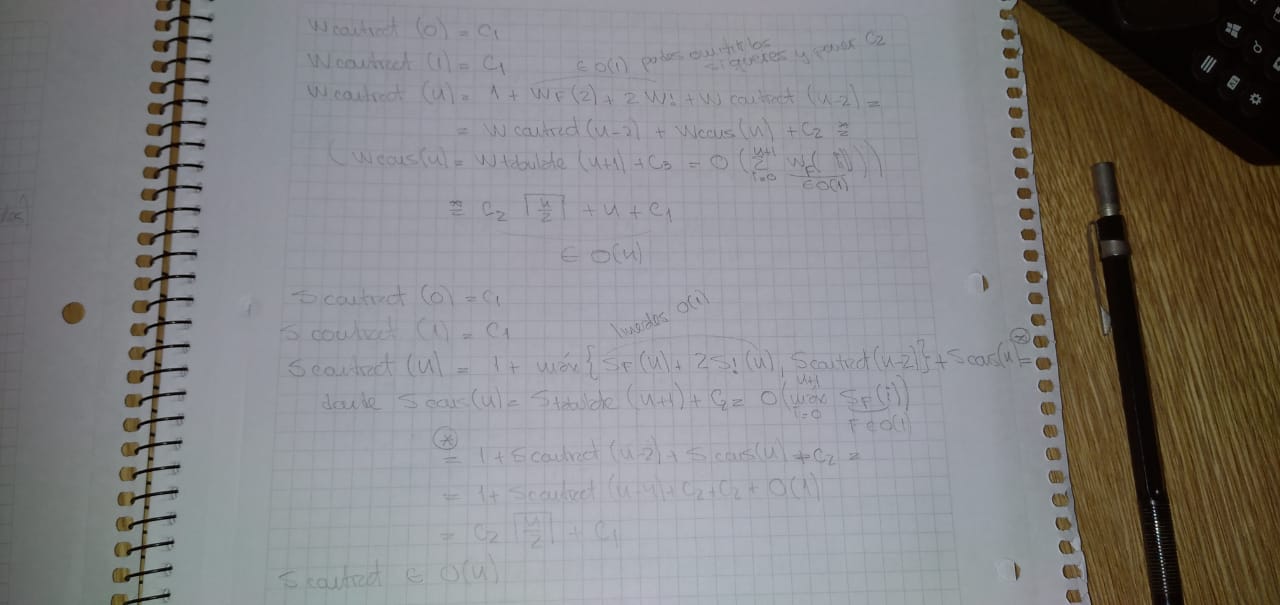 Wcontract (0) = C₁
Wcontract (1) = C₁
∈ O(1) podes omitir los
y poner C₂
Wcontract (n) = 1 + W_F(2) + 2W! + Wcontract (n-2) =
= Wcontract(n-2) + Wcons(n) + C₂ ≅
(Wcons(n) = Wtabulate (n+1) + C₃ = O(∑ᵢ₌₀ⁿ⁺¹ W_F(i)))
∈O(1)
≅ C₂ ⌈n/2⌉ + n + C₁
∈ O(n)
Scontract (0) = C₁
Scontract (1) = C₁
O(1)
Scontract (n) = 1 + máx {S_F(n) + 2S!(n), Scontract(n-2)} + Scons(n) =
donde Scons(n) = Stabulate (n+1) + C₂ = O(máxᵢ₌₀ⁿ⁺¹ S_F(i))
F ∈ O(1)
(*)
= 1 + Scontract (n-2) + Scons(n) + C₂ =
= 1 + Scontract (n-4) + C₂ + C₂ + O(1)
= C₂ ⌈n/2⌉ + C₁
Scontract ∈ O(n)